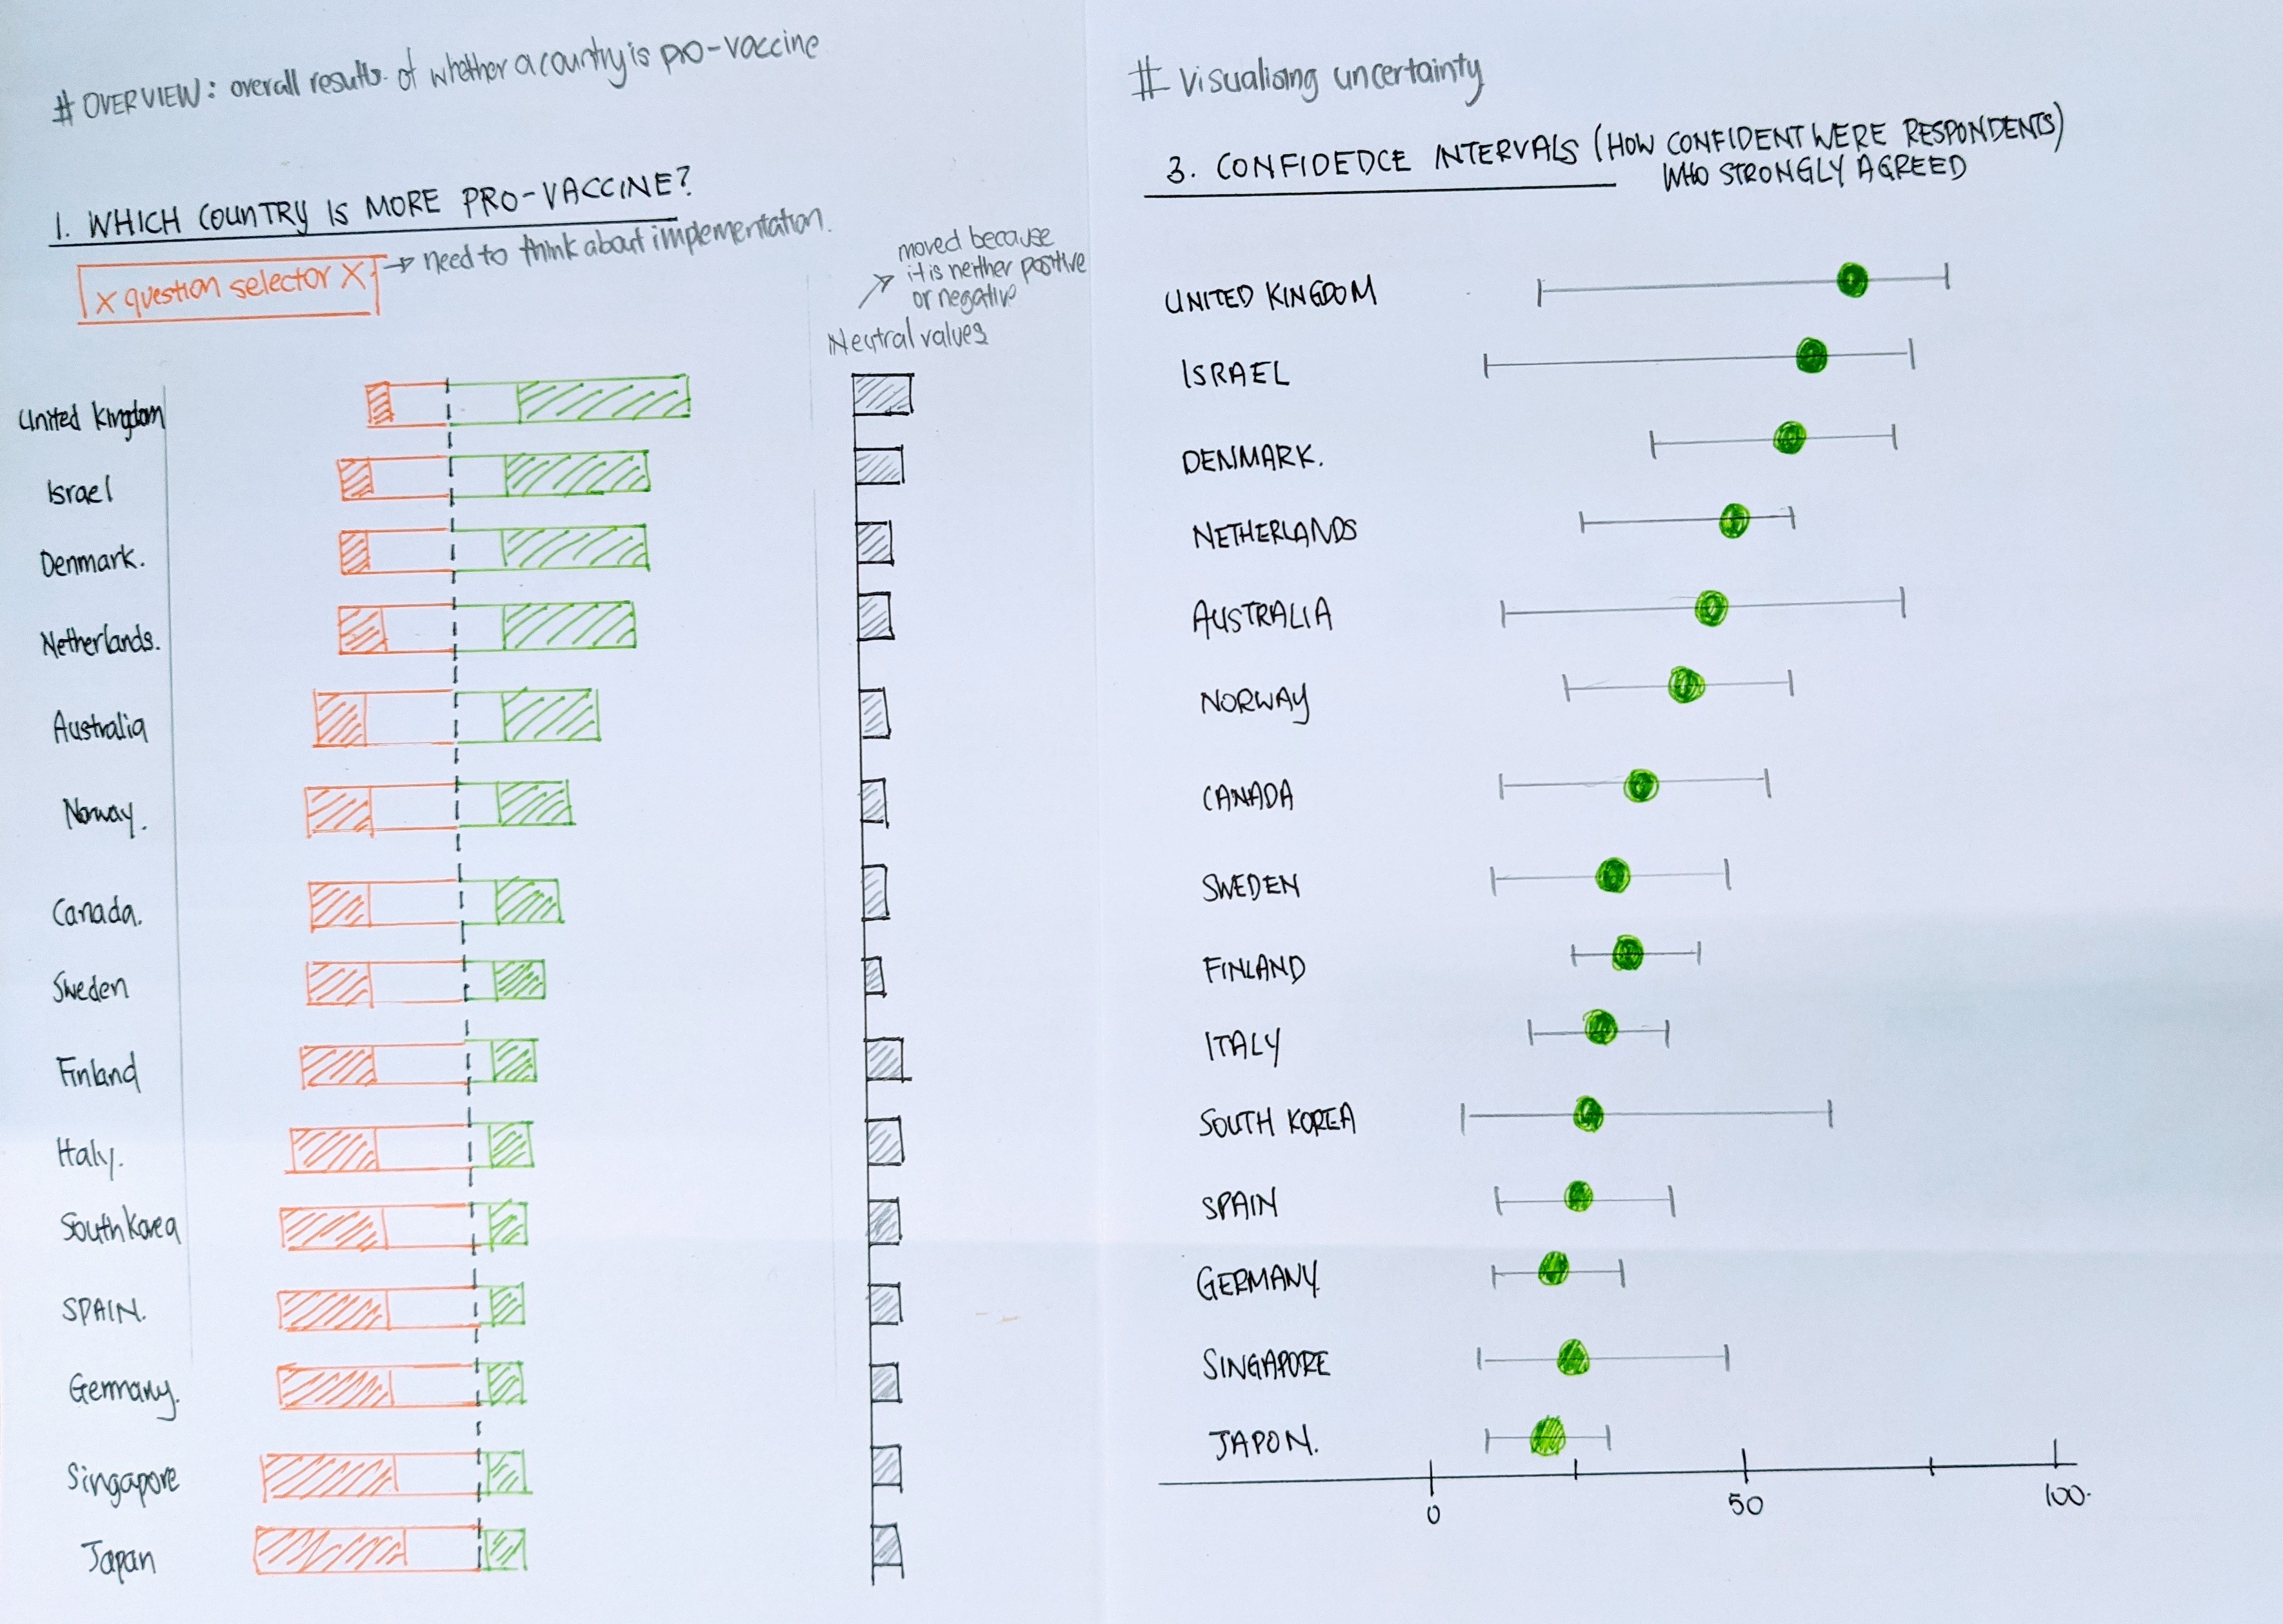 # OVERVIEW: overall results. of whether a country is pro-vaccine
1. WHICH COUNTRY IS MORE PRO-VACCINE?
x question selector x
→ need to think about implementation.
moved because
it is neither positive
or negative
Neutral values
United Kingdom
Israel
Denmark.
Netherlands.
Australia
Norway.
Canada.
Sweden
Finland
Italy.
South Korea
SPAIN.
Germany.
Singapore
Japan
# Visualising uncertainty
3. CONFIDEDCE INTERVALS (HOW CONFIDENT WERE RESPONDENTS)
WHO STRONGLY AGREED
UNITED KINGDOM
ISRAEL
DENMARK.
NETHERLANDS
AUSTRALIA
NORWAY
CANADA
SWEDEN
FINLAND
ITALY
SOUTH KOREA
SPAIN
GERMANY
SINGAPORE
JAPON.
0 50 100.